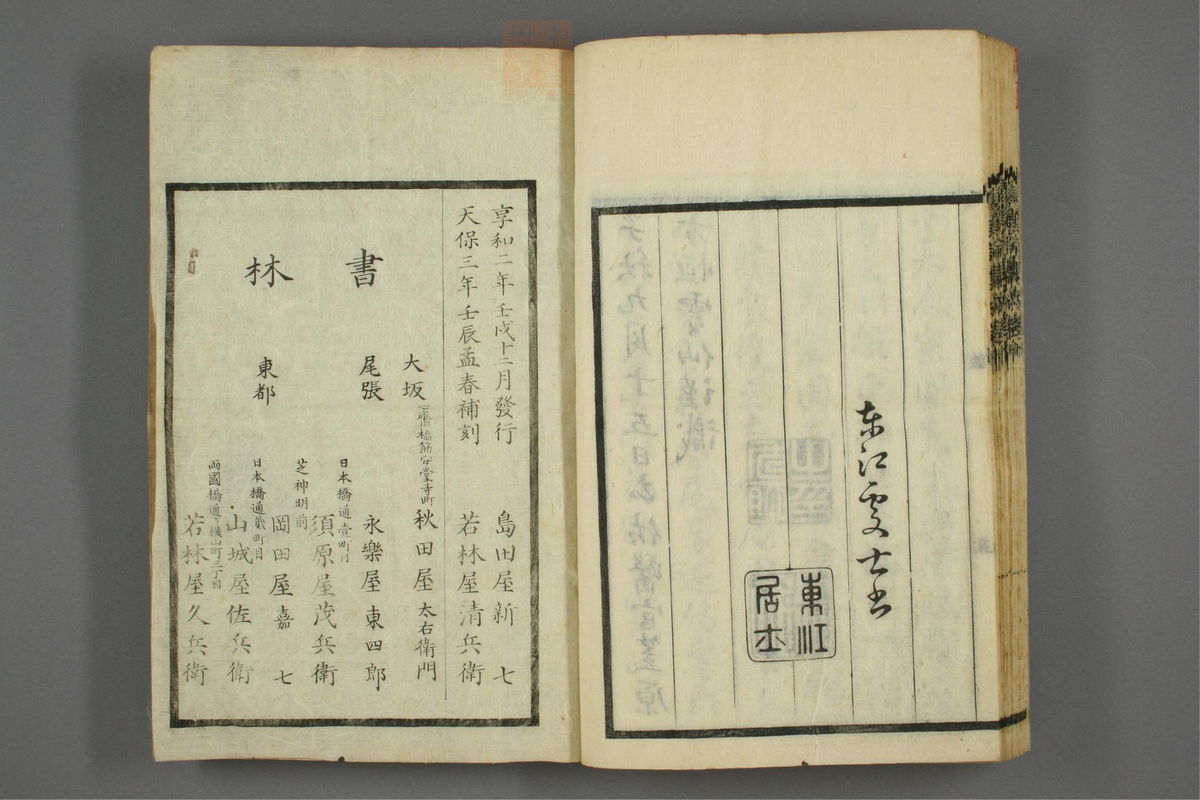 東江處士書
東江
居士
享和二年壬戌十二月發行　島田屋新七
天保三年壬辰孟春補刻　若林屋清兵衛
書林
大坂　心齋橋筋安堂寺町　秋田屋太右衛門
尾張　永樂屋東四郎
東都　日本橋通壹町目　須原屋茂兵衛
芝神明前　岡田屋嘉七
日本橋通貳町目　山城屋佐兵衛
兩國橋通横山町三丁目　若林屋久兵衛